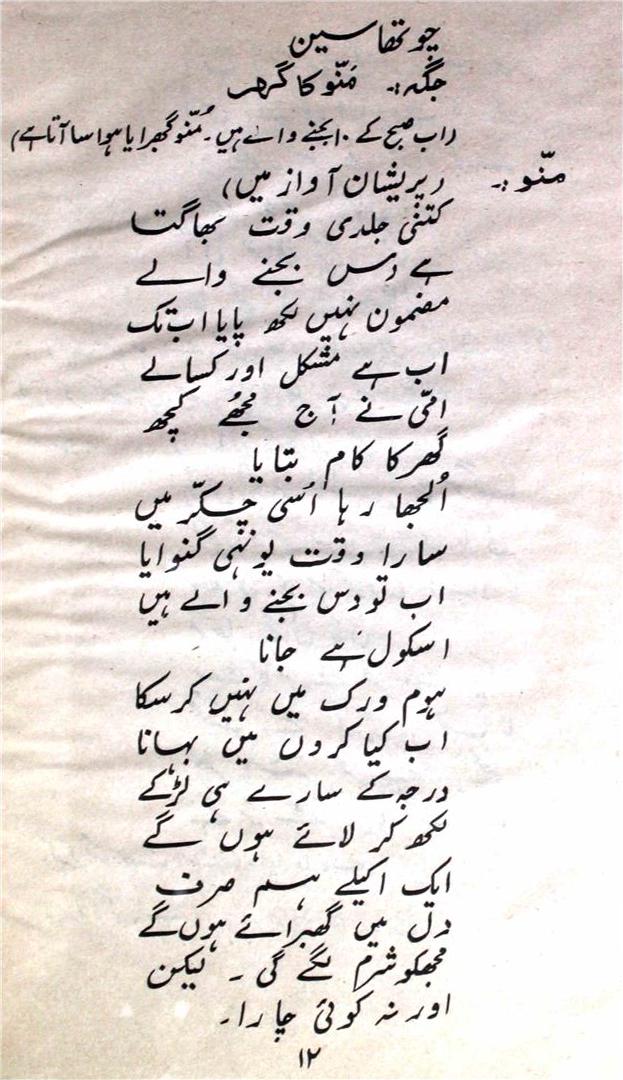 چوتھا سین
جگہ :۔ مُنّو کا گھر
(اب صبح کے ۱۰ بجنے والے ہیں۔ مُنّو گھبرایا ہوا سا آتا ہے)
منّو :۔ (پریشان آواز میں)
کتنی جلدی وقت بھاگتا
ہے دس بجنے والے
مضمون نہیں لکھ پایا اب تک
اب ہے مشکل اور کسالے
امّی نے آج مجھے کچھ
گھر کا کام بتایا
اُلجھا رہا اُسی چکّر میں
سارا وقت یونہی گنوایا
اب تو دس بجنے والے ہیں
اسکول ہے جانا
ہوم ورک میں نہیں کر سکا
اب کیا کروں میں بہانا
درجہ کے سارے ہی لڑکے
لکھ کر لائے ہوں گے
ایک اکیلے ہم صرف
دل میں گھبرائے ہوں گے
مجھکو شرم لگے گی ۔ لیکن
اور نہ کوئی چارا۔
۱۲